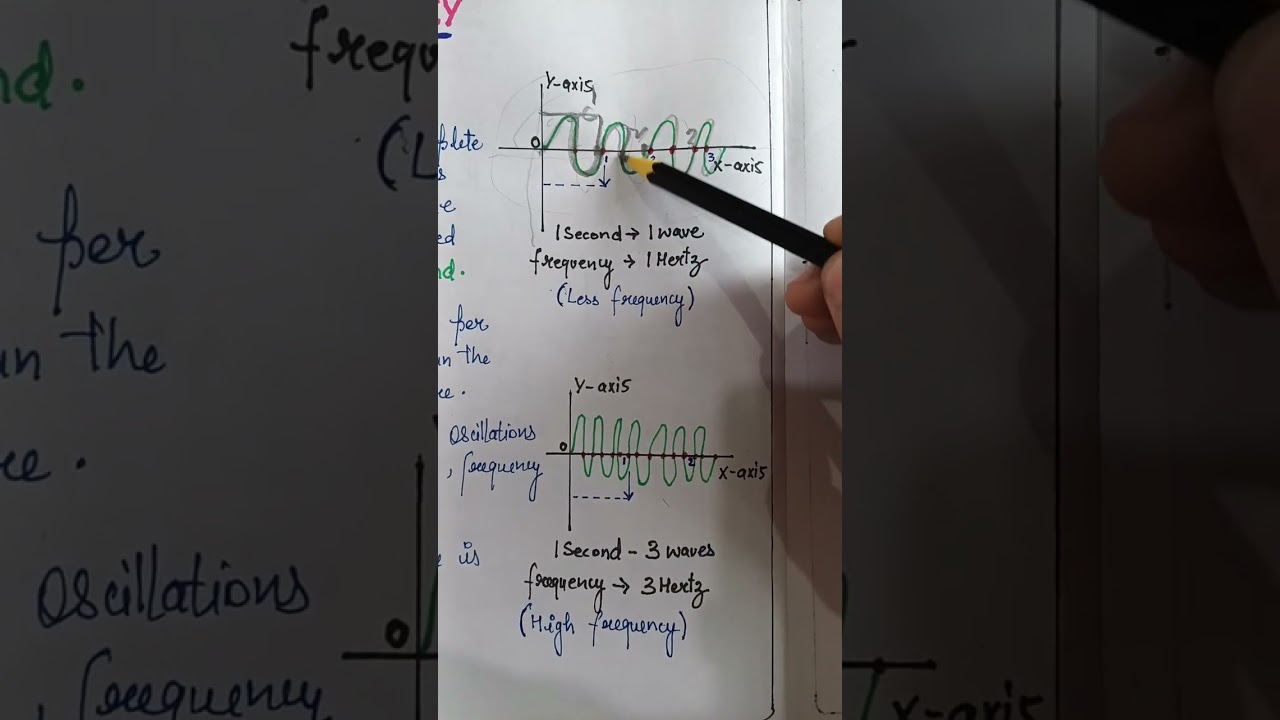 Y-axis
0
1
2
3
X-axis
1 Second → 1 wave
frequency → 1 Hertz
(Less frequency)
per
in the
Y-axis
Oscillations
0
1
2
X-axis
, frequency
1 Second - 3 waves
is
frequency → 3 Hertz
(High frequency)